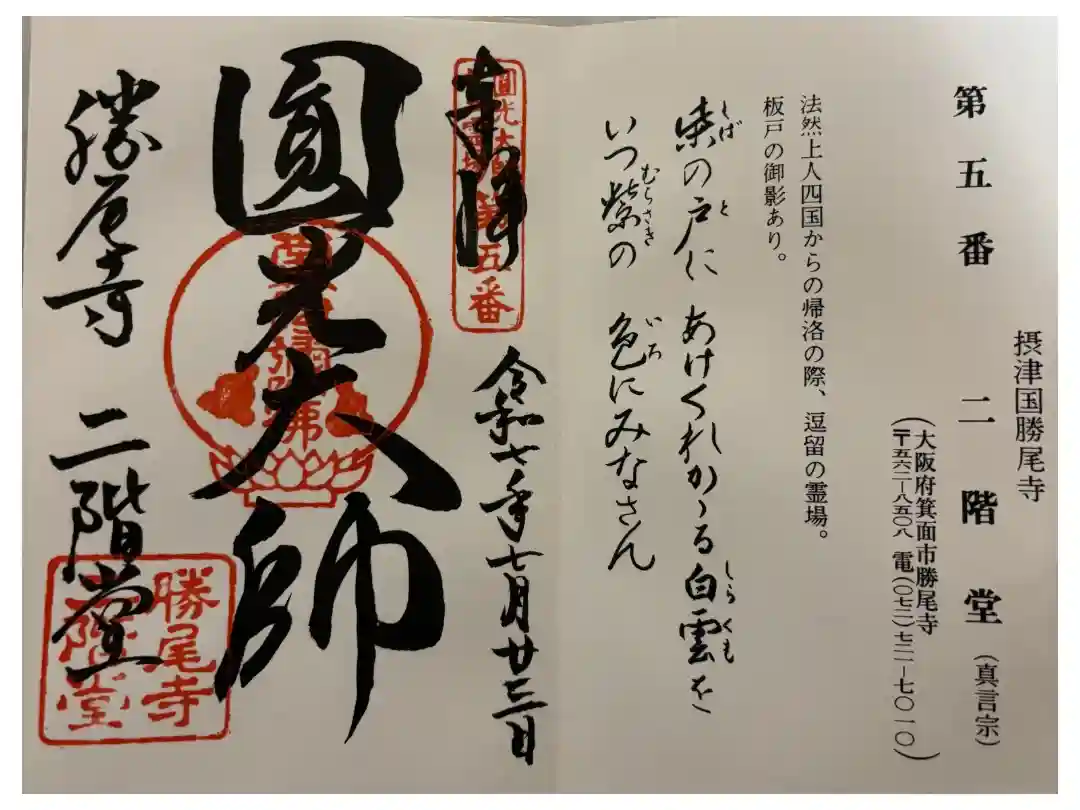 摂津国勝尾寺
第五番 二階堂(真言宗)
(大阪府箕面市勝尾寺
〒五六二―八五〇八 電(〇七二)七二一―七〇一〇)
法然上人四国からの帰洛の際、逗留の霊場。
板戸の御影あり。
柴の戸に あけくれかゝる白雲を
しば と しらくも
いつ紫の 色にみなさん
むらさき いろ
奉拝
第五番
令和七年七月廿三日
圓光大師
勝尾寺 二階堂
勝尾寺
二階堂